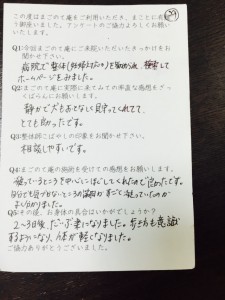 この度はまごのて庵をご利用いただき、まことに有り
難う御座いました。アンケートのご協力よろしくお願い
いたします。
Q1:今回まごのて庵にご来院いただいたきっかけをお
聞かせ下さい。
病院で整体を勧められ、検索して
ホームページをみました。
Q2:まごのて庵に実際に来てみての率直な感想をざっ
くばらんにお願いします。
静かで犬もおとなしく見守ってくれてて、
とても良かったです。
Q3:整体師こばやしの印象をお聞かせ下さい。
相談しやすいです。
Q4:まごのて庵の施術を受けての感想をお願いします。
凝っているところを中心にほぐしてくれたので良かったです。
自分でも気づかないうちに
よく分かりました。
Q5:その後、お身体の具合はいかがでしょうか?
2～3日後、だいぶ楽になりました。歩き方も意識
するようになり、体が軽くなりました。
ご協力ありがとうございました。